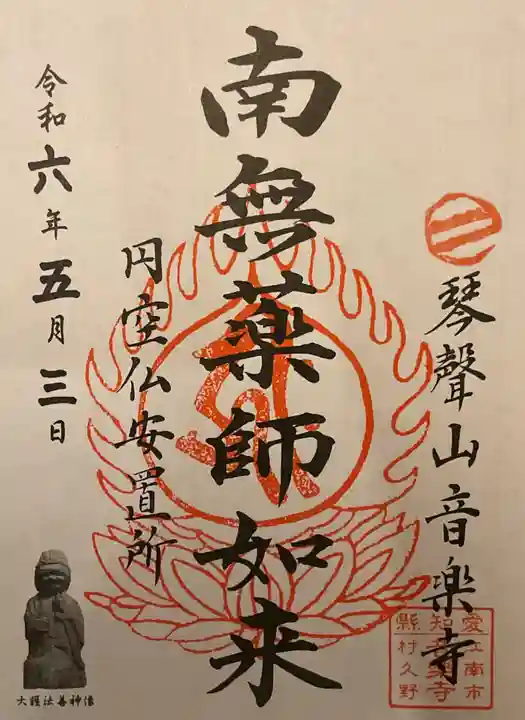 琴聲山音楽寺
南無薬師如来
円空仏安置所
令和六年五月三日
大護法善神像
愛江南市
知音楽寺
縣村久野